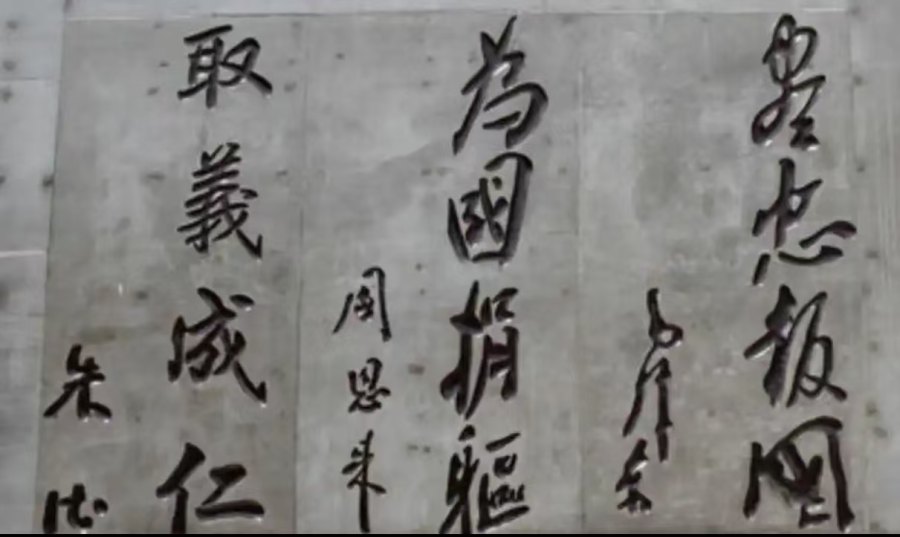 盡忠報國
毛澤東
為國捐軀
周恩來
取義成仁
朱德